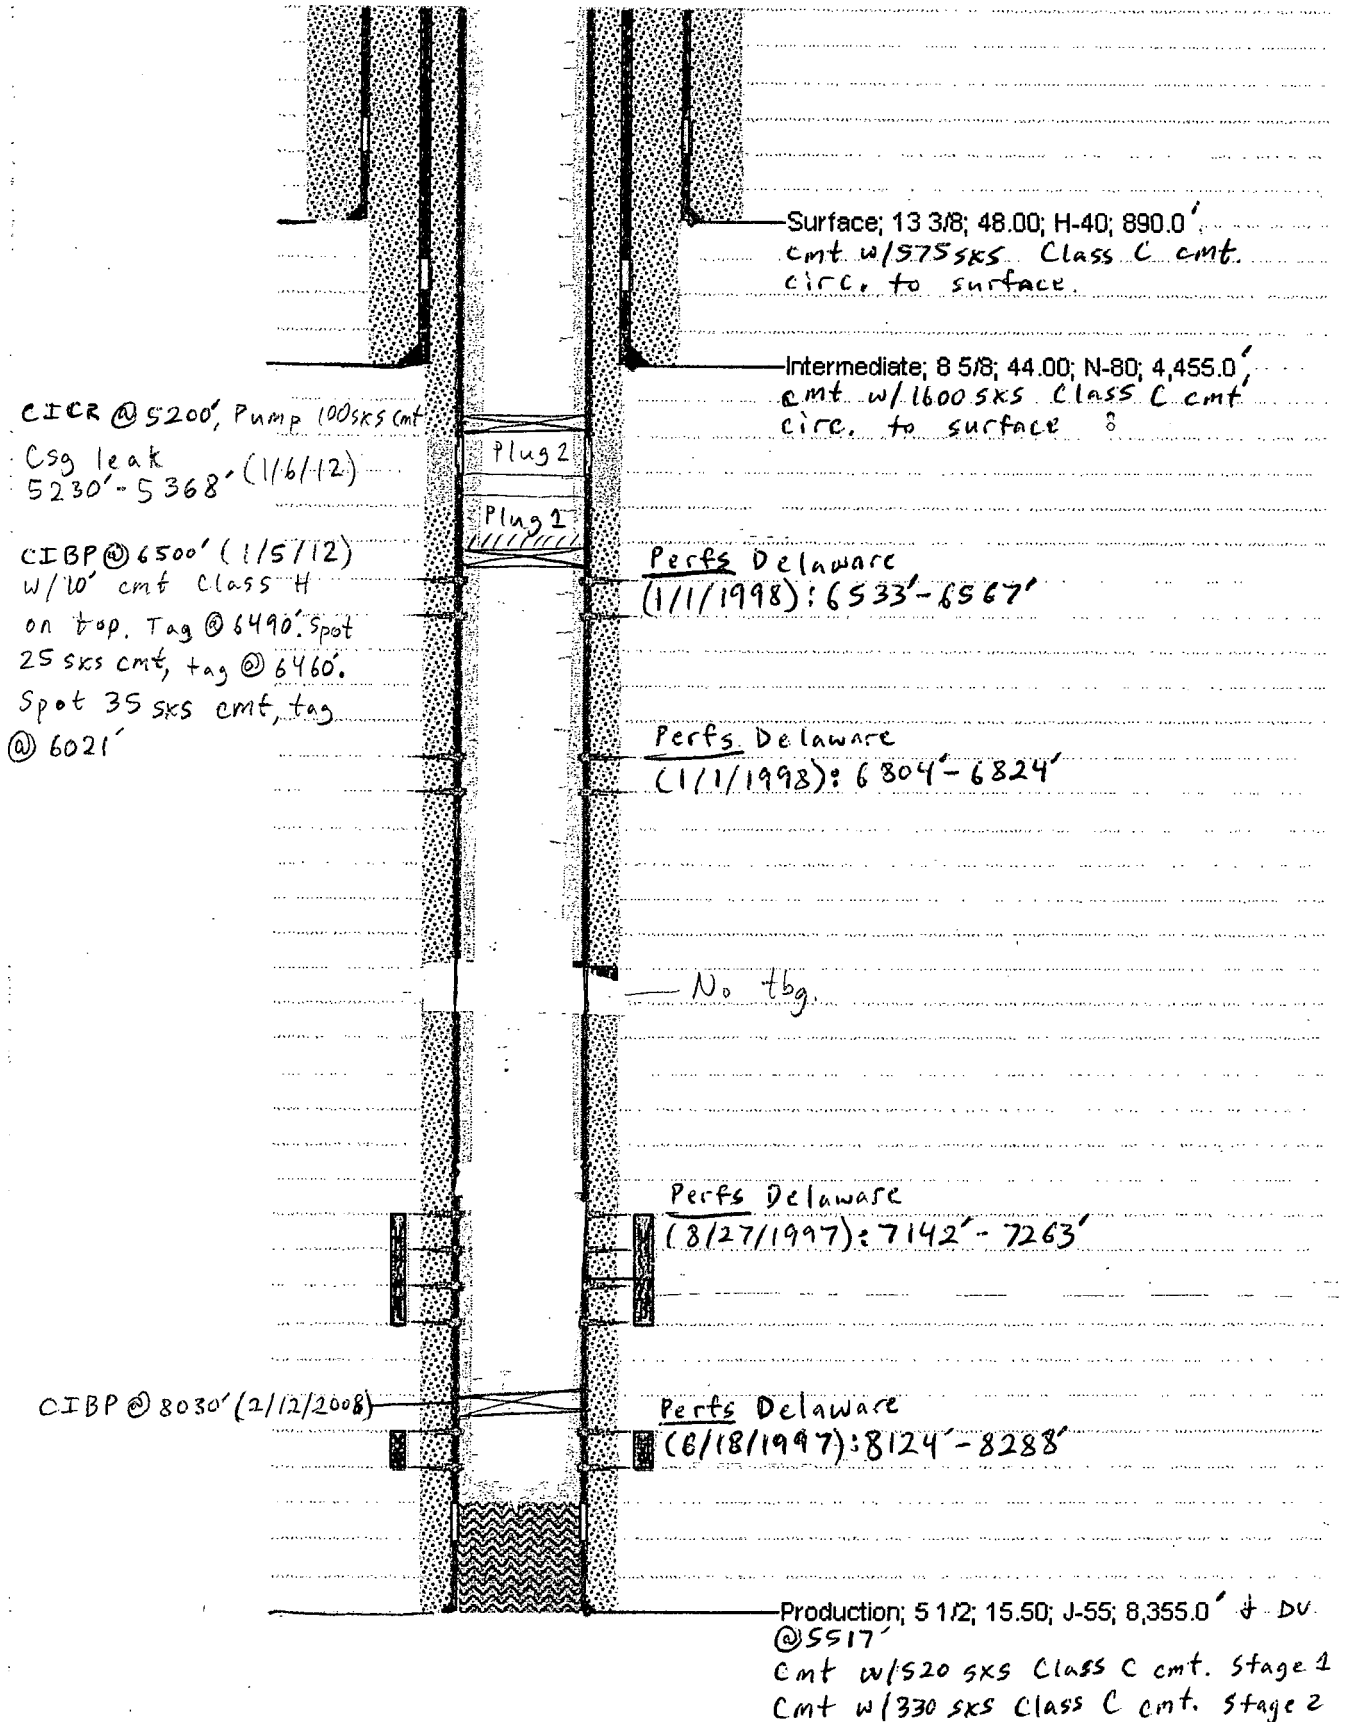 Surface; 13 3/8; 48.00; H-40; 890.0'
cmt w/575 sks Class C cmt.
circ. to surface.
Intermediate; 8 5/8; 44.00; N-80; 4,455.0'
cmt w/ 1600 sks Class C cmt
circ. to surface
CICR @ 5200', Pump 100sks cmt
Csg leak
5230'-5368' (1/6/12)
Plug 2
Plug 1
CIBP @ 6500' (1/5/12)
w/10' cmt Class H
on top. Tag @ 6490'. Spot
25 sks cmt, tag @ 6460'.
Spot 35 sks cmt, tag
@ 6021'
Perfs Delaware
(1/1/1998): 6533'-6567'
Perfs Delaware
(1/1/1998): 6804'-6824'
No tbg.
Perfs Delaware
(8/27/1997): 7142'-7263'
CIBP @ 8030' (2/12/2008)
Perfs Delaware
(6/18/1997): 8124'-8288'
Production; 5 1/2; 15.50; J-55; 8,355.0' & DV
@5517'
Cmt w/520 sks Class C cmt. Stage 1
Cmt w/330 sks Class C cmt. Stage 2